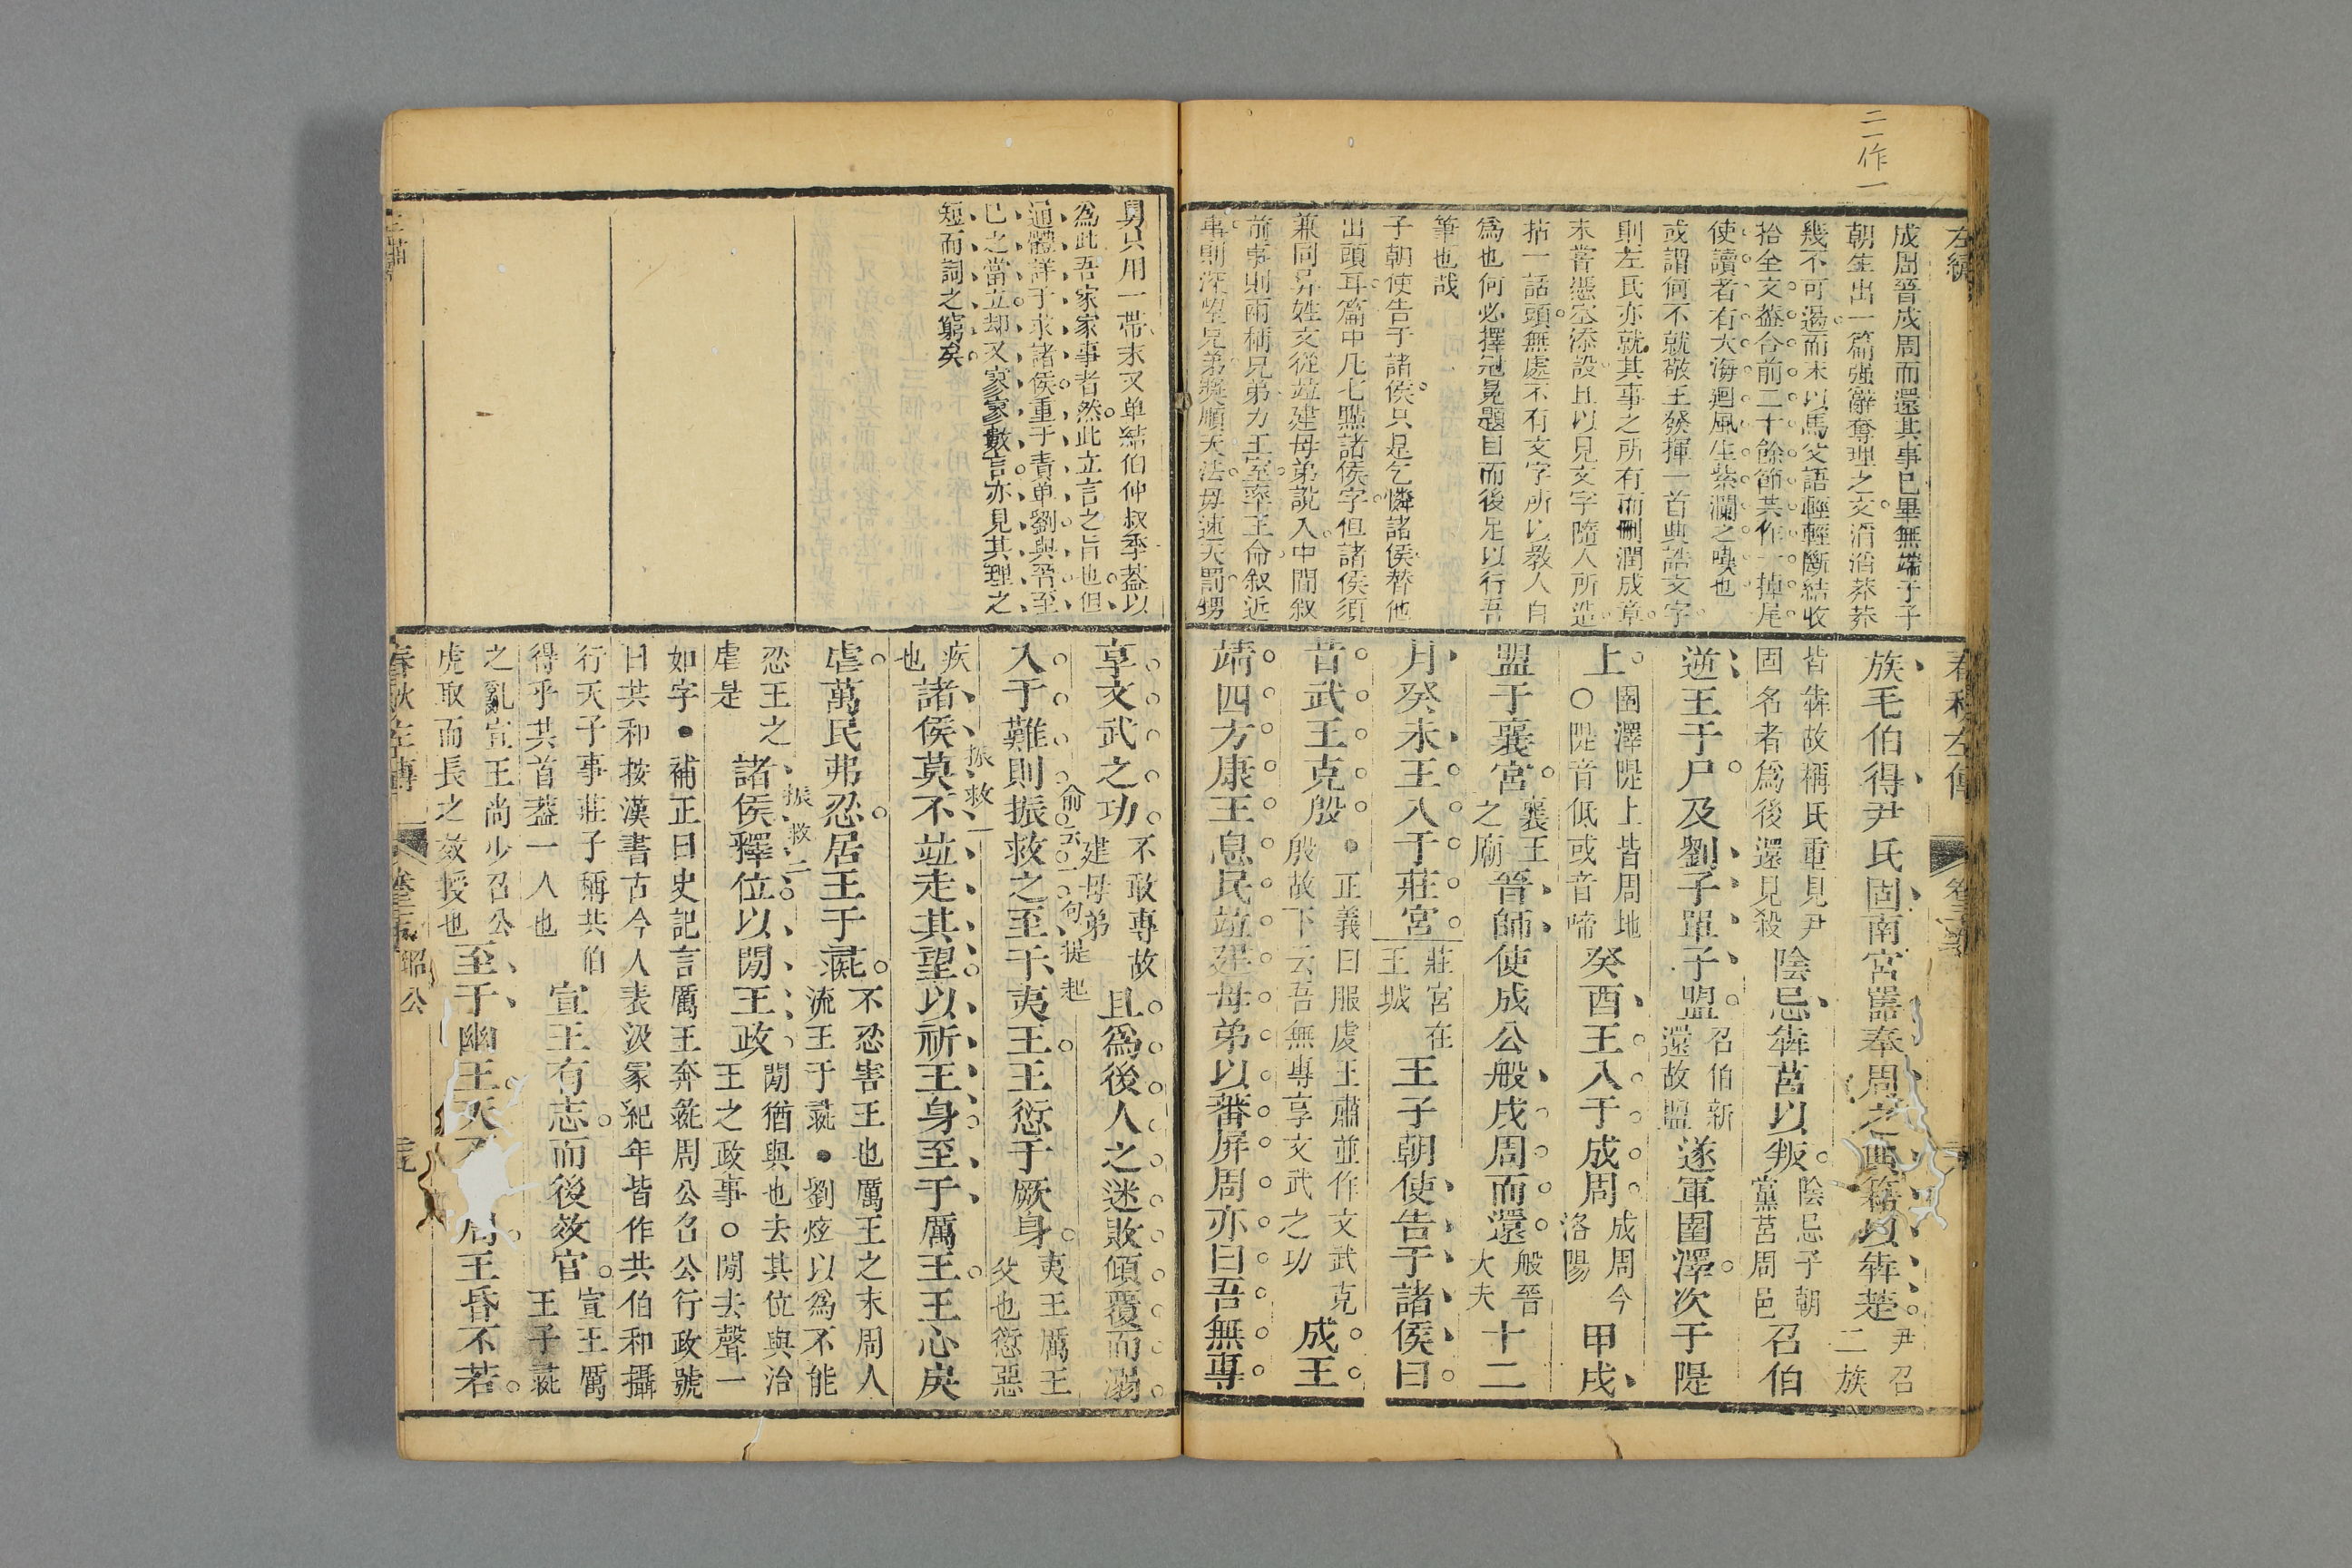 二一作一
左繡
成周晉戍周而還其事已畢無端子子
朝生出一篇强辭奪理之文滔滔莽莽
幾不可遏而末以馬父語輕輕斷結收
拾全文葢合前二十餘節共作一掉尾
使讀者有大海迴風生紫瀾之嘆也
或謂何不就敬王發揮一首典誥文字
則左氏亦就其事之所有而刪潤成章
未嘗憑空添設且以見文字隨人所造
拈一話頭無處不有文字所以教人自
爲也何必擇冠冕題目而後足以行吾
筆也哉
子朝使告于諸侯只是乞憐諸侯替他
出頭耳篇中凡七點諸侯字但諸侯須
兼同异姓文從竝建母弟說入中間叙
前事則兩稱兄弟力王室率王命叙近
事則深望兄弟奬順天法毋速天罰甥
春秋左傳
族毛伯得尹氏固南宮嚚奉周之典籍以奔楚尹召二族
皆奔故稱氏重見尹固名者爲後還見殺陰忌奔莒以叛陰忌子朝黨莒周邑召伯
逆王于尸及劉子單子盟召伯新還故盟遂軍圍澤次于隄
上圉澤隄上皆周地〇隄音低或音啼癸酉王入于成周成周今洛陽甲戌
盟于襄宮襄王之廟晉師使成公般戍周而還般晉大夫十二
月癸未王入于莊宮莊宮在王城王子朝使告于諸侯曰
昔武王克殷●正義曰服虔王肅並作文武克殷故下云吾無專享文武之功成王
靖四方康王息民竝建母弟以蕃屏周亦曰吾無專
舅只用一帶末又单結伯仲叔季葢以
為此吾家家事者然此立言之旨也但
通體詳于求諸侯重于責单劉與晉至
已之當立却又寥寥數言亦見其理之
短而詞之窮矣
享文武之功不敢專故建母弟且爲後人之迷敗傾覆而溺
俞云一句提起
入于難則振救之至于夷王王愆于厥身夷王厲王父也愆惡
疾也諸侯莫不竝走其望以祈王身至于厲王王心戾
振救一
虐萬民弗忍居王于彘不忍害王也厲王之末周人流王于彘●劉炫以爲不能
忍王之虐是諸侯釋位以閒王政閒猶與也去其位與治王之政事〇閒去聲一
振救二
如字●補正曰史記言厲王奔彘周公召公行政號
曰共和按漢書古今人表汲冢紀年皆作共伯和攝
行天子事莊子稱共伯得乎共首葢一人也宣王有志而後效官宣王厲王子彘
之亂宣王尚少召公虎取而長之效授也至于幽王天周王昏不若
春秋左傳
昭公